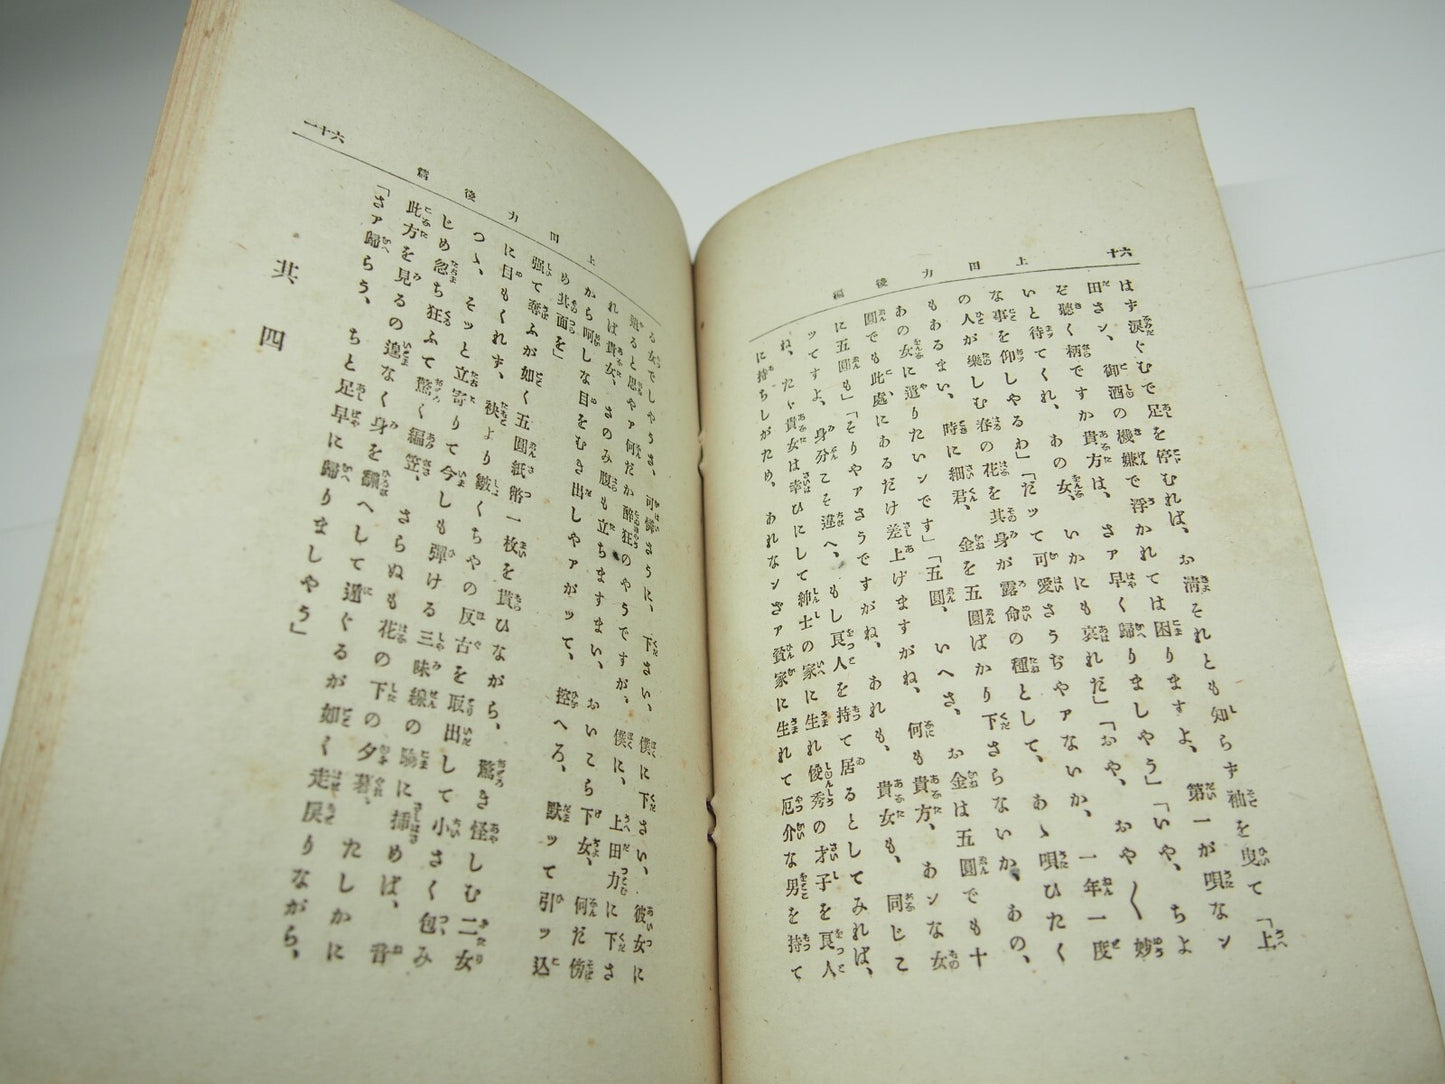 六十
上田力後編
はず涙ぐむで足を停むれば、お清それとも知らず袖を曳て「上
田さン、御酒の機嫌で浮かれては困りますよ、第一が唄なン
を聴く柄ですか貴方は、さァ早く歸りましやう」「いや、ちよ
いと待てくれ、あの女、いかにも哀れだ」「おや、おや〱妙
な事を仰しやるわ」「だッて可愛さうぢやァないか、一年一度
の人が樂しむ春の花を其身が露命の種として、あゝ唄ひたく
もあるまい、時に細君、金を五圓ばかり下さらないか、あの、
あの女に遣りたいンです」「五圓、いへさ、お金は五圓でも十
圓でも此處にあるだけ差上げますがね、何も貴方、あンな女
に五圓も」「そりやァさうですがね、あれも、貴女も、同じこ
ッてすよ、身分こそ違へ、もし良人を持て居るとしてみれば、
ね、たゞ貴女は幸ひにして紳士の家に生れ優秀の才子を良人
に持ちしがため、あれなンざァ貧家に生れて厄介な男を持て
六十一
上田力後篇
る女でしやうさ、可憐さうに、下さい、僕に下さい、彼女に
遣ると思やァ何だか醉狂のやうですが、僕に、上田力に下さ
れば貴女、さのみ腹も立ちますまい、おいこら下女、何だ傍
から呵しな目をむき出しやァがッて、控へろ、默ッて引ッ込
め其面を」
强て奪ふが如く五圓紙幣一枚を貰ひながら、驚き怪しむ二女
に目もくれず、袂より皺くちやの反古を取出して小さく包み
つゝ、そッと立寄りて今しも彈ける三味線の駒に挿めば、音
じめ忽ち狂ふて驚く編笠、さらぬも花の下の夕暮、たしかに
此方を見るの遑なく身を飜へして逃ぐるが如く走戻りながら、
「さァ歸らう、ちと足早に歸りましやう」
其四